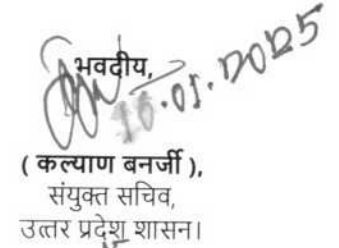 भवदीय,
.01.2025
( कल्याण बनर्जी ),
संयुक्त सचिव,
उत्तर प्रदेश शासन।